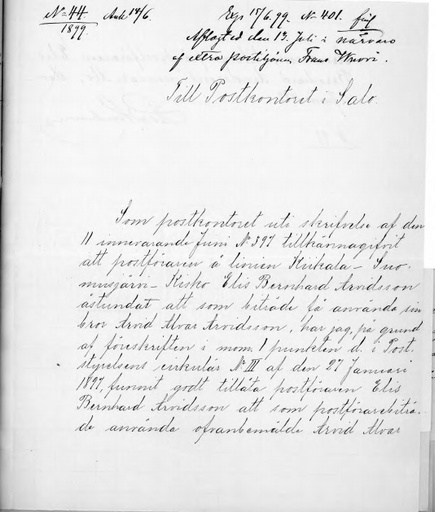 No 44
1899.
Ank 14/6.
Exp 15/6.99. No 401.
Aflagt ed den 13. Juli i närvaro
af extra postiljonen Frans
Till Postkontoret i Salo.
Som postkontoret uti skrifvelse af den
11 innevarande Juni No 397 tillkännagifvit
att postföraren å linien Kiikala - Suo-
musjärvi - Kisko Elis Bernhard Arvidsson
åstundat att som biträde få använda sin
bror Arvid Alvar Arvidsson, har jag, på grund
af föreskriften i mom. 1 punkten d. i Post-
styrelsens cirkulär No III af den 27 Januari
1897, funnit godt tillåta postföraren Elis
Bernhard Arvidsson att som postförarebiträ-
de använda ofvanbemälde Arvid Alvar